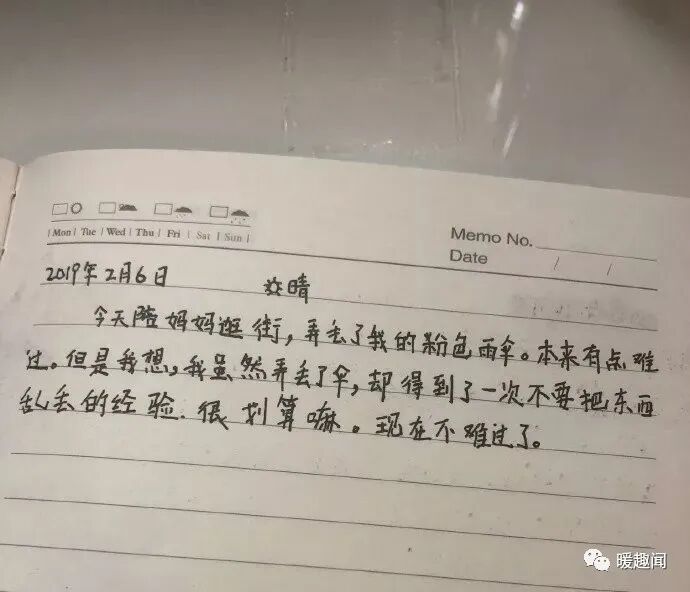 Mon Tue Wed Thu Fri Sat Sun
Memo No.
Date / /
2019年2月6日 晴
今天陪妈妈逛街，弄丢了我的粉色雨伞。本来有点难
过。但是我想，我虽然弄丢了伞，却得到了一次不要把东西
乱丢的经验.很划算嘛。现在不难过了。
暖趣闻